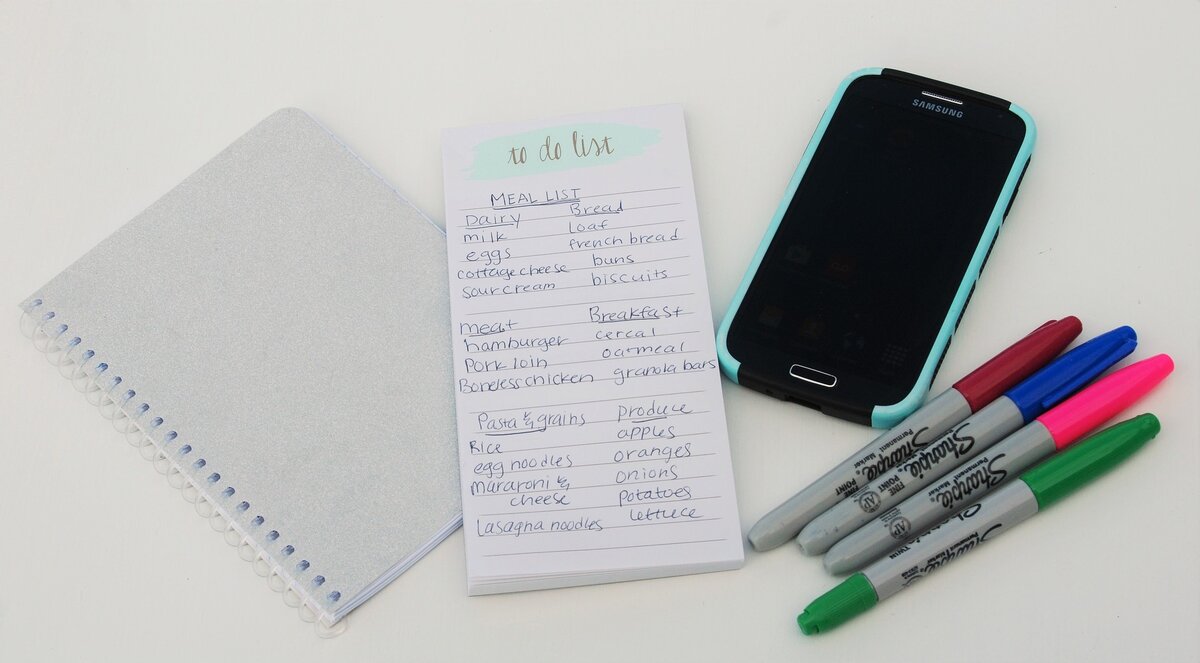 to do list
MEAL LIST
Dairy
milk
eggs
cottage cheese
sour cream
Bread
loaf
french bread
buns
biscuits
meat
hamburger
Pork loin
Boneless chicken
Breakfast
cereal
oatmeal
granola bars
Pasta & grains
Rice
egg noodles
mararoni &
cheese
lasagna noodles
produce
apples
oranges
onions
potatoes
lettuce
SAMSUNG
Sharpie
FINE POINT
Permanent Marker
Sharpie
FINE POINT
Permanent Marker
AP
Sharpie
Permanent Marker
AP
Sharpie
TWIN
Sharpie
Permanent Marker